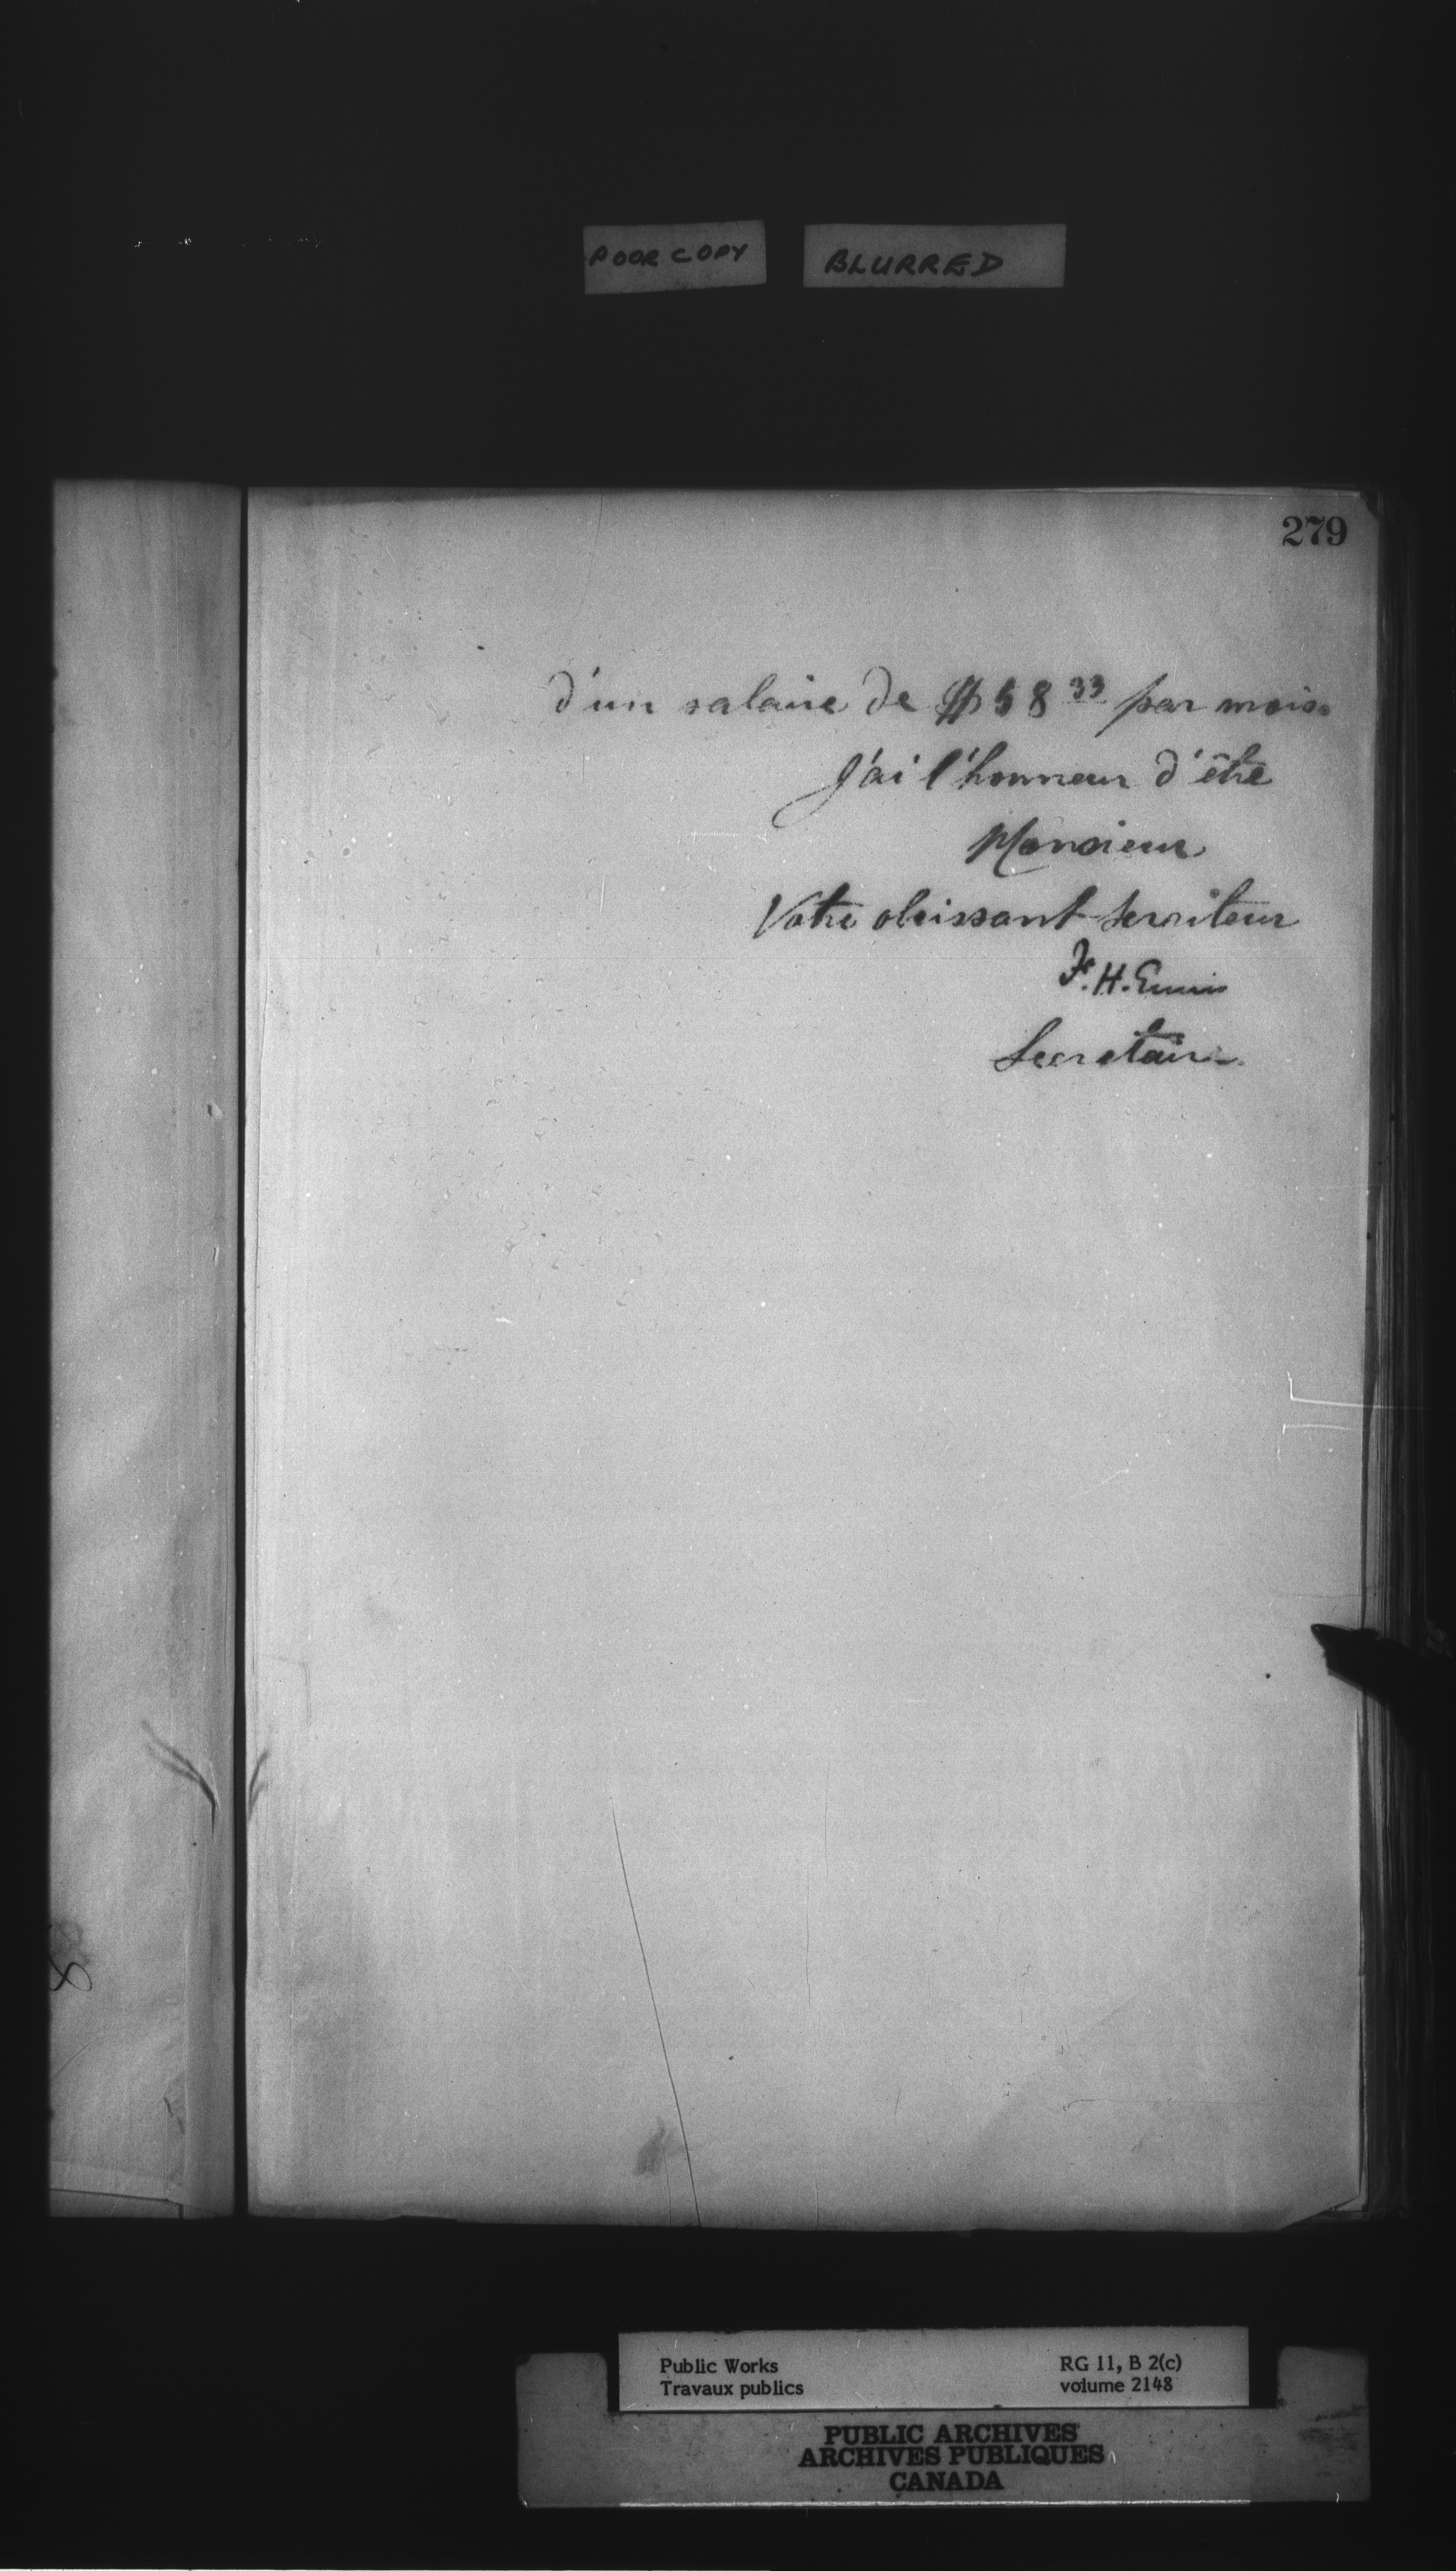 POOR COPY
BLURRED
279
d'un salaire de $58 33 par mois.
J'ai l'honneur d'être
Monsieur
Votre obeissant serviteur
F. H. Ennis
Secretaire
8
Public Works
Travaux publics
RG 11, B 2(c)
volume 2148
PUBLIC ARCHIVES
ARCHIVES PUBLIQUES
CANADA